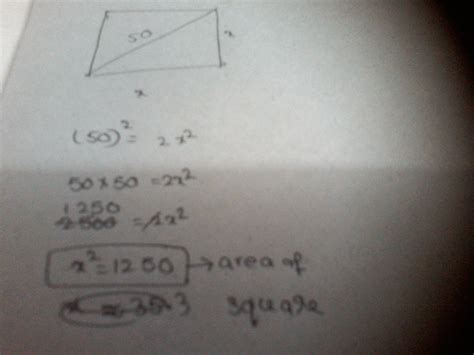 50
x
x
(50)² = 2x²
50 x 50 = 2x²
1250
2500 = 2x²
x² = 1250 → area of
square